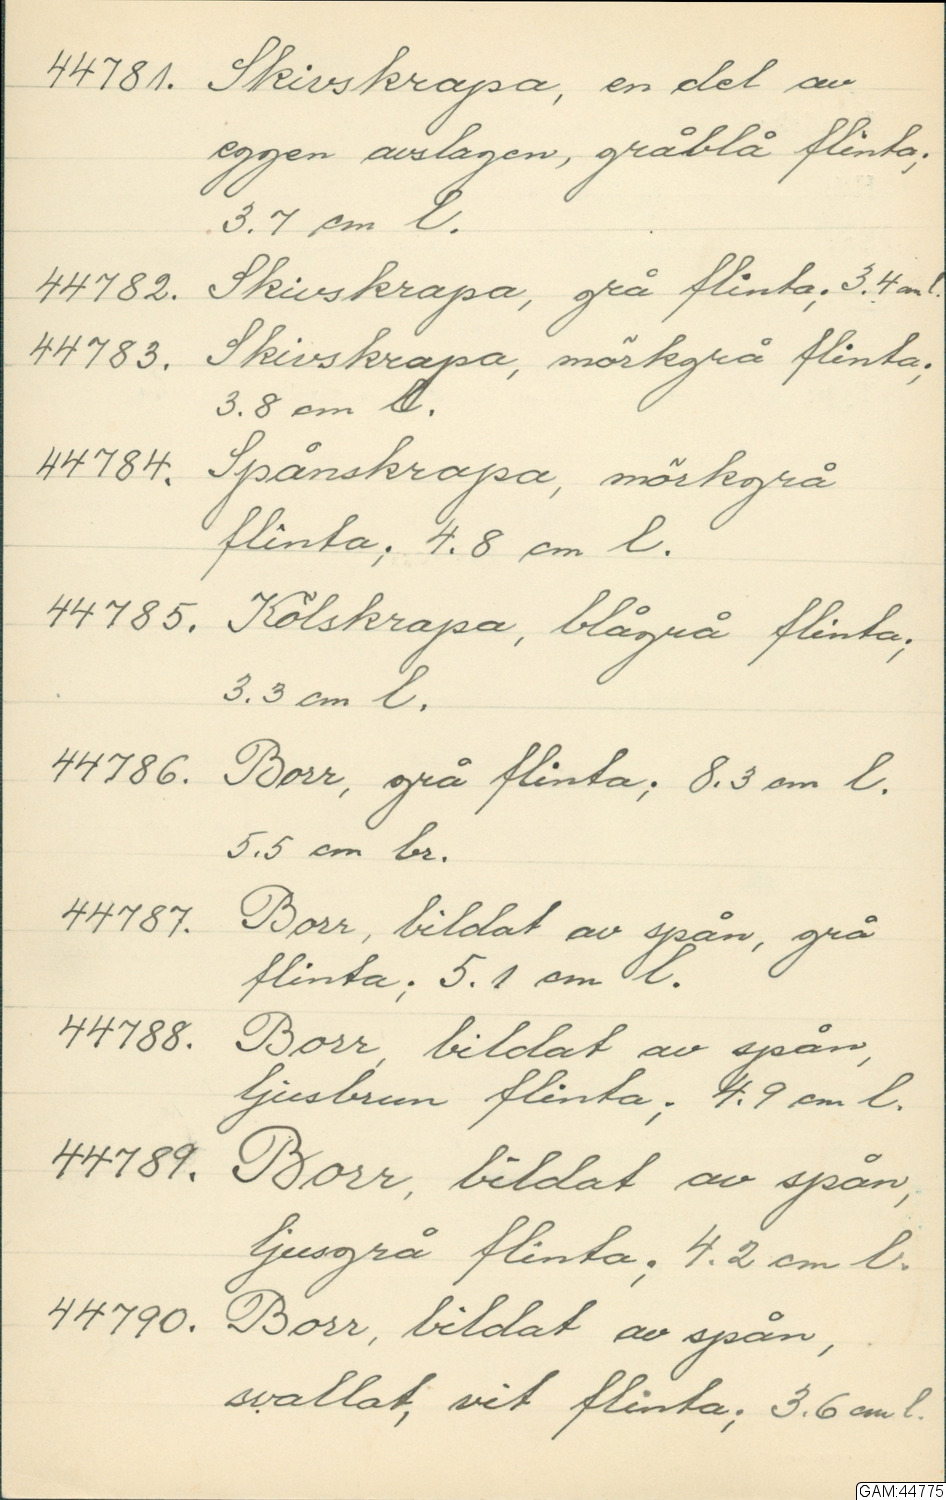 44781. Skivskrapa, en del av
eggen avslagen, gråblå flinta;
3.7 cm l.
44782. Skivskrapa, grå flinta; 3.4 cm l.
44783. Skivskrapa, mörkgrå flinta;
3.8 cm l.
44784. Spånskrapa, mörkgrå
flinta; 4.8 cm l.
44785. Kölskrapa, blågrå flinta;
3.3 cm l.
44786. Borr, grå flinta; 8.3 cm l.
5.5 cm br.
44787. Borr, bildat av spån, grå
flinta; 5.1 cm l.
44788. Borr, bildat av spån,
ljusbrun flinta; 4.9 cm l.
44789. Borr, bildat av spån,
ljusgrå flinta; 4.2 cm l.
44790. Borr, bildat av spån,
svallat, vit flinta; 3.6 cm l.
GAM:44775